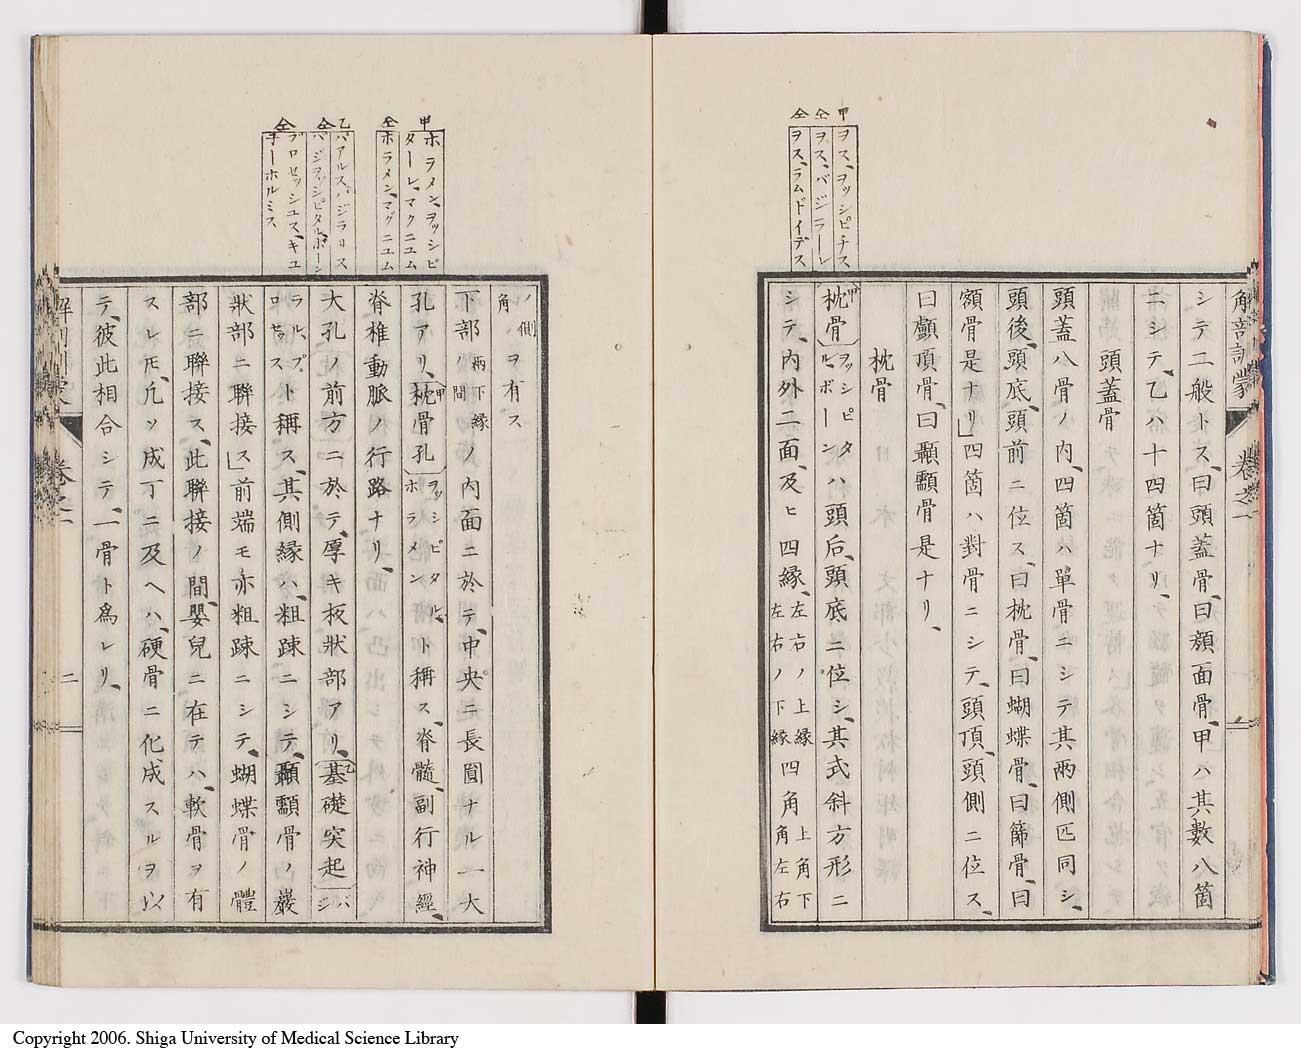 解剖訓蒙 卷之一
シテ二般トス、曰頭蓋骨、曰顔面骨、甲ハ其數八箇
ニシテ、乙ハ十四箇ナリ、
頭蓋骨
頭蓋八骨ノ内、四箇ハ單骨ニシテ其兩側匹同シ、
頭後、頭底、頭前ニ位ス、曰枕骨、曰蝴蝶骨、曰篩骨、曰
額骨是ナリ」四箇ハ對骨ニシテ、頭頂、頭側ニ位ス、
曰顱頂骨、曰顳顬骨是ナリ、
枕骨
甲 ヲス、ヲッシピチス
仝 ヲス、バジラーレ
仝 ヲス、ラムドイデス
枕骨〔ヲッシピタルボーン〕ハ頭后、頭底ニ位シ、其式斜方形ニ
シテ、内外二面、及ヒ四縁、左右ノ上縁左右ノ下縁四角上角下角左右
ノ側角ヲ有ス
甲 ホラメン、ヲッシピターレ、マクニユム
仝 ホラメン、マグニユム
下部兩下縁ノ間ノ内面ニ於テ、中央ニ長圓ナル一大
孔アリ、枕骨孔〔ヲッシピタル、ホラメン〕ト稱ス、脊髓、副行神經、
脊椎動脈ノ行路ナリ、
乙 パアルス、バジラリス
仝 バジヲッシピタルボーン
仝 プロセッシユス、キユネーホルミス
大孔ノ前方ニ於テ、厚キ板狀部アリ、基礎突起〔バシ
ラル、プロセッス〕ト稱ス、其側縁ハ、粗踈ニシテ、顳顬骨ノ巖
狀部ニ聯接ス」前端モ亦粗踈ニシテ、蝴蝶骨ノ體
部ニ聯接ス、此聯接ノ間、嬰兒ニ在テハ、軟骨ヲ有
スレ𪜈、凡ソ成丁ニ及ヘハ、硬骨ニ化成スルヲ以
テ、彼此相合シテ、一骨ト爲レリ、
解剖訓蒙 卷之一 二
Copyright 2006. Shiga University of Medical Science Library